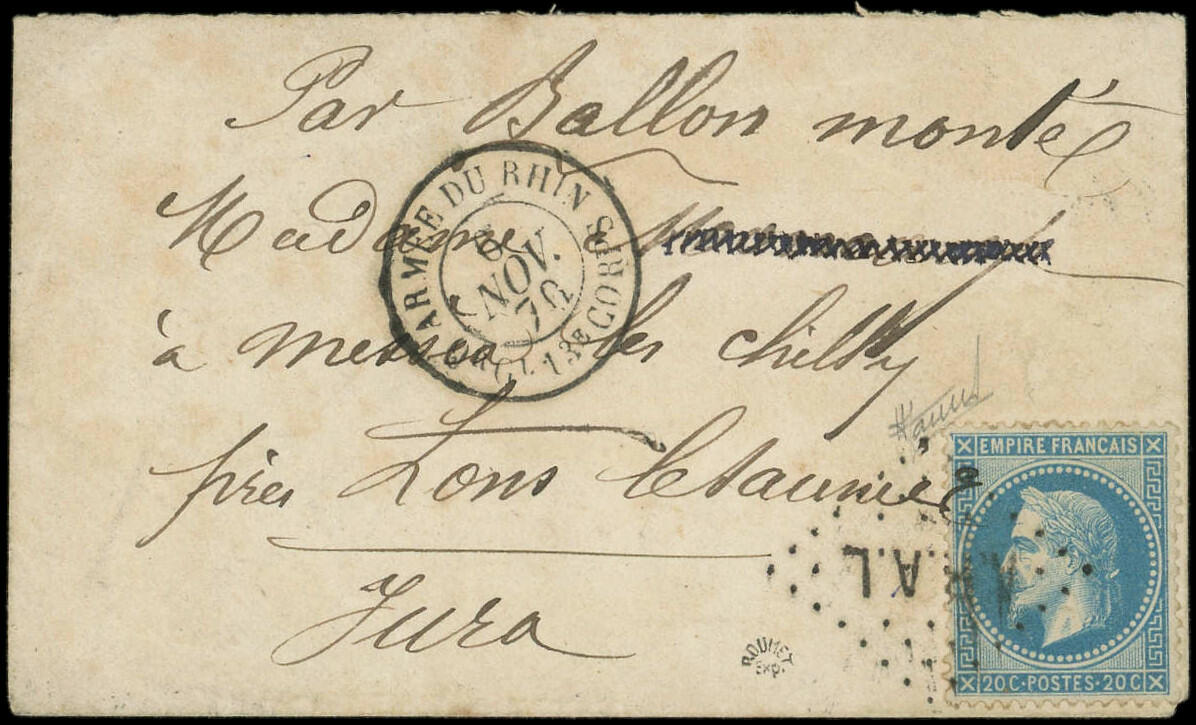 Par Ballon monté
Madame
à messia les chilly
près Lons le saunier
Jura
ARMÉE DU RHIN
8
NOV.
70
13E CORPS
EMPIRE FRANÇAIS
20C·POSTES·20C
A.L
ROUMET
Exp.